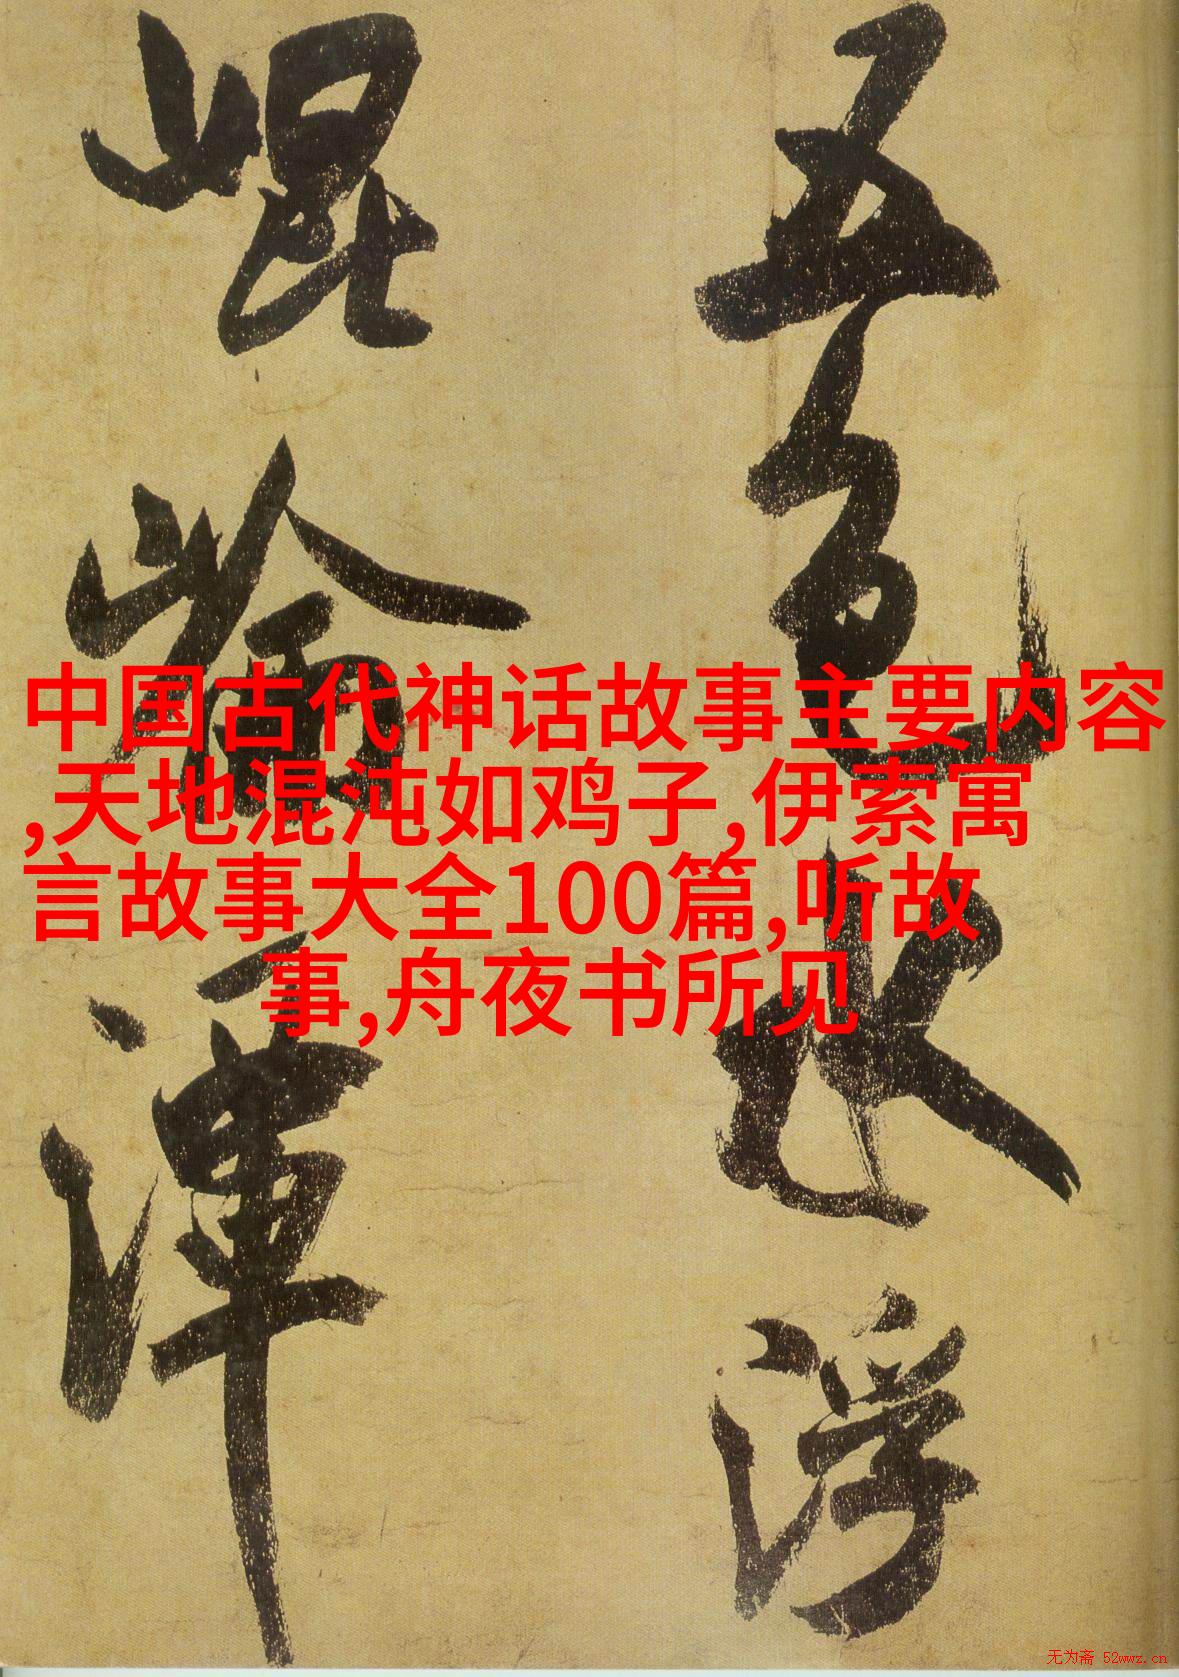 五色水浮
崐崘渾
中国古代神话故事主要内容
,天地混沌如鸡子,伊索寓
言故事大全100篇,听故
事,舟夜书所见
无为斋 52wwz.cn